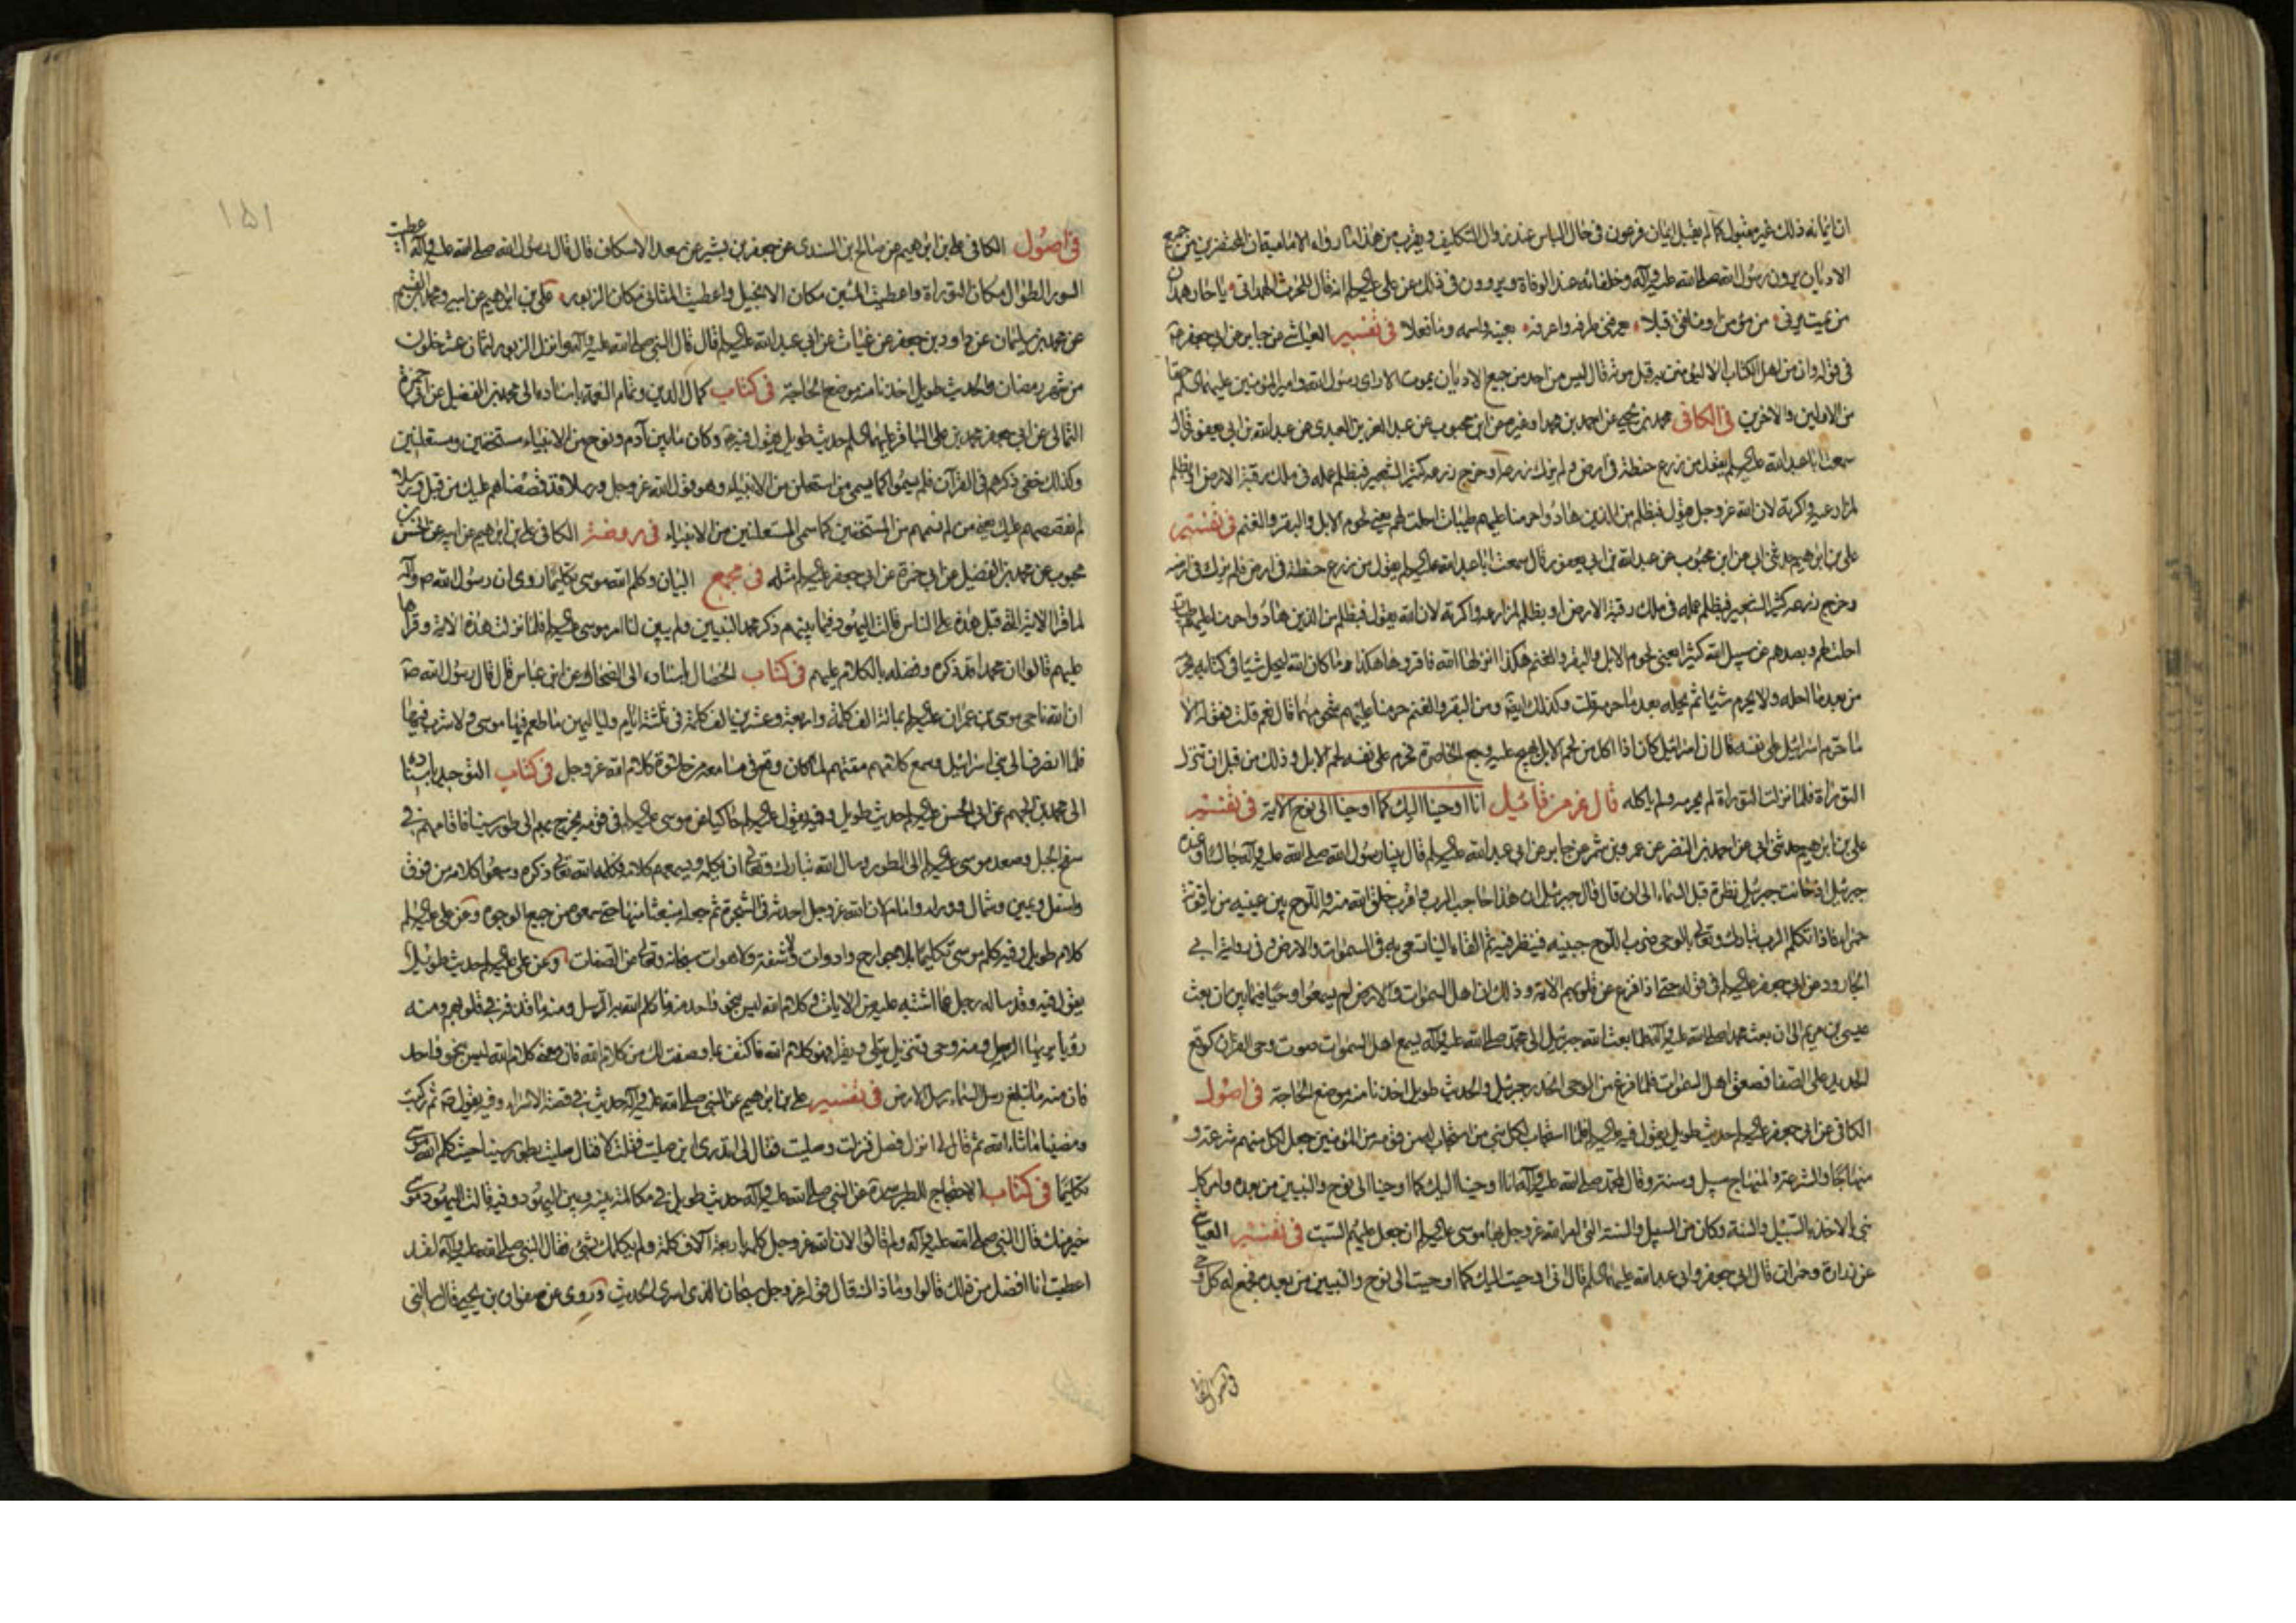 ان ايمانه ذلك غير مقبول كما لم يقبل ايمان فرعون في حال الباس عند زوال التكليف ويقرب من هذا ما رواه الامامية ان المحتضرين من جميع
الاديان يرون رسول الله صلى الله عليه وآله وخلفائه عند الوفاة ويروون في ذلك عن علي عليه السلم انه قال للحرث الهمداني يا حار همدان
من يمت يرني من مؤمن او منافق قبلا يعرفني طرفه واعرفه بعينه واسمه وما فعلا في تفسير العياشي عن جابر عن ابي جعفر ع
في قوله وان من اهل الكتاب الا ليؤمنن به قبل موته قال ليس من احد من جميع الاديان يموت الا راى رسول الله وامير المؤمنين عليهما السلم حقا
من الاولين والاخرين في الكافي محمد بن يحيى عن احمد بن محمد وغيره عن ابن محبوب عن عبد العزيز العبدي عن عبد الله بن ابي يعفور قال
سمعت ابا عبد الله عليه السلم يقول من زرع حنطة في ارض ولم يزك زرعه او خرج زرعه كثير الشعير فبظلم عمله في ملك رقبة الارض او بظلم
لمزارعيه واكرته لان الله عز وجل يقول فبظلم من الذين هادوا حرمنا عليهم طيبات احلت لهم يعني لحوم الابل والبقر والغنم في تفسير
علي بن ابرهيم حدثني ابي عن ابن محبوب عن عبد الله بن ابي يعفور قال سمعت ابا عبد الله عليه السلم يقول من زرع حنطة في ارض فلم يزك في ارضه
وخرج زرعه كثير الشعير فبظلم عمله في ملك رقبة الارض او بظلم لمزارعه واكرته لان الله يقول فبظلم من الذين هادوا حرمنا عليهم طيبات
احلت لهم وبصدهم عن سبيل الله كثيرا يعني لحوم الابل والبقر والغنم هكذا انزلها الله فاقروها هكذا وما كان الله ليحل شيئا في كتابه ثم يحرمه
من بعد ما احله ولا يحرم شيئا ثم يحله بعد ما حرمه قلت وكذلك ايضا ومن البقر والغنم حرمنا عليهم شحومهما قال نعم قلت فقوله الا
ما حرم اسرائيل على نفسه قال ان اسرائيل كان اذا اكل من لحم الابل هيج عليه وجع الخاصرة فحرم على نفسه لحم الابل وذلك من قبل ان تنزل
التوراة فلما نزلت التوراة لم يحرمه ولم ياكله قال عز من قائل انا اوحينا اليك كما اوحينا الى نوح الاية في تفسير
علي بن ابرهيم حدثني ابي عن احمد بن النضر عن عمرو بن شمر عن جابر عن ابي عبد الله عليه السلم قال بينا رسول الله صلى الله عليه وآله جالسا وعنده
جبرئيل اذ حانت من جبرئيل نظرة قبل السماء الى ان قال قال جبرئيل ان هذا حاجب الرب واقرب خلق الله منه واللوح بين عينيه من ياقوتة
حمراء فاذا تكلم الرب تبارك وتعالى بالوحي ضرب اللوح جبينه فينظر فيه ثم القاه الينا نسعى به في السموات والارض وفي رواية ابي
الجارود عن ابي جعفر عليه السلم في قوله حتى اذا فزع عن قلوبهم الاية وذلك ان اهل السموات والارض لم يسمعوا وحيا فيما بين ان بعث
عيسى بن مريم الى ان بعث محمد صلى الله عليه وآله فلما بعث الله جبرئيل الى محمد صلى الله عليه وآله سمع اهل السموات صوت وحي القرآن كوقع
الحديد على الصفا فصعق اهل السموات فلما فرغ من الوحي انحدر جبرئيل والحديث طويل اخذنا منه موضع الحاجة في اصول
الكافي عن ابي جعفر عليه السلم حديث طويل يقول فيه عليه السلم فلما استجاب لكل نبي من استجاب له من قومه من المؤمنين جعل لكل منهم شرعة و
منهاجا والشرعة والمنهاج سبيل وسنة وقال لمحمد صلى الله عليه وآله انا اوحينا اليك كما اوحينا الى نوح والنبيين من بعده وامر كل
نبي بالاخذ بالسبيل والسنة وكان من السبيل والسنة التي امر الله عز وجل بها موسى عليه السلم ان جعل عليهم السبت في تفسير العياشي
عن زرارة وحمران عن ابي جعفر وابي عبد الله عليهما السلم قال اني اوحيت اليك كما اوحيت الى نوح والنبيين من بعده فجمع له كل وحي
في اصول الكافي
١٥١
في اصول الكافي علي بن ابرهيم عن صالح بن السندي عن جعفر بن بشير عن سعد الاسكاف قال قال رسول الله صلى الله عليه وآله اعطيت
السور الطوال مكان التوراة واعطيت المئين مكان الانجيل واعطيت المثاني مكان الزبور علي بن ابرهيم عن ابيه ومحمد بن القسم
عن محمد بن سليمان عن داود بن حفص عن غياث عن ابي عبد الله عليه السلم قال قال النبي صلى الله عليه وآله انزل الزبور لثمان عشر خلون
من شهر رمضان والحديث طويل اخذنا منه موضع الحاجة في كتاب كمال الدين وتمام النعمة باسناده الى محمد بن الفضيل عن ابي حمزة
الثمالي عن ابي جعفر محمد بن علي الباقر عليهما السلم حديث طويل يقول فيه وكان ما بين آدم ونوح من الانبياء مستخفين ومستعلنين
وكذلك خفي ذكرهم في القرآن فلم يسموا كما يسمى من استعلن من الانبياء وهو قول الله عز وجل ورسلا قد قصصناهم عليك من قبل ورسلا
لم نقصصهم عليك يعني من لم نسمهم من المستخفين كما سمى المستعلنين من الانبياء في روضة الكافي علي بن ابرهيم عن ابيه عن الحسن بن
محبوب عن محمد بن الفضيل عن ابي حمزة عن ابي جعفر عليه السلم مثله في مجمع البيان وكلم الله موسى تكليما روي ان رسول الله ص وآله
لما قرا الاية التي قبل هذه على الناس قالت اليهود فيما بينهم ذكر محمد النبيين ولم يبين لنا امر موسى عليه السلم فلما نزلت هذه الاية وقراها
عليهم قالوا ان محمدا قد ذكره وفضله بالكلام عليهم في كتاب الخصال باسناده الى الضحاك عن ابن عباس قال قال رسول الله ص
ان الله ناجى موسى بن عمران عليه السلم بمائة الف كلمة واربعة وعشرين الف كلمة في ثلثة ايام ولياليهن ما طعم فيها موسى ولا شرب فيها
فلما انصرف الى بني اسرائيل وسمع كلامهم مقتهم لما كان وقع في مسامعه من حلاوة كلام الله عز وجل في كتاب التوحيد باسناده
الى محمد بن الجهم عن ابي الحسن عليه السلم حديث طويل وفيه يقول عليه السلم حاكيا عن موسى عليه السلم في قومه فخرج بهم الى طور سينا فاقامهم في
سفح الجبل وصعد موسى عليه السلم الى الطور وسال الله تبارك وتعالى ان يكلمه ويسمعهم كلامه فكلمه الله تعالى ذكره وسمعوا كلامه من فوق
واسفل ويمين وشمال ووراء وامام لان الله عز وجل احدثه في الشجرة ثم جعله منبعثا منها حتى سمعوه من جميع الوجوه وعن علي عليه السلم
كلام طويل وفيه كلم موسى تكليما بلا جوارح وادوات ولا شفة ولا لهوات سبحانه وتعالى عن الصفات وعن علي عليه السلم حديث طويل
يقول فيه وقد ساله رجل عما اشتبه عليه من الايات وكلام الله ليس بنحو واحد منه ما كلم الله به الرسل ومنه ما قذف في قلوبهم ومنه
رؤيا يريها الرسل ومنه وحي وتنزيل يتلى ويقرا فهو كلام الله فاكتف بما وصفت لك من كلام الله فان معنى كلام الله ليس بنحو واحد
فان منه ما تبلغ رسل السماء رسل الارض في تفسير علي بن ابرهيم عن النبي صلى الله عليه وآله حديث في قصة الاسراء وفيه يقول ص ثم ركبت
ومضينا ما شاء الله ثم قال لي انزل فصل فنزلت وصليت فقال لي اتدري اين صليت فقلت لا فقال صليت بطور سينا حيث كلم الله موسى
تكليما في كتاب الاحتجاج للطبرسي ره عن النبي صلى الله عليه وآله حديث طويل في مكالمة بينه وبين اليهود وفيه قالت اليهود موسى
خير منك قال النبي صلى الله عليه وآله ولم قالوا لان الله عز وجل كلمه باربعة آلاف كلمة ولم يكلمك بشيء فقال النبي صلى الله عليه وآله لقد
اعطيت انا افضل من ذلك قالوا وما ذاك قال قوله عز وجل سبحان الذي اسرى الحديث وروي عن صفوان بن يحيى قال سالني